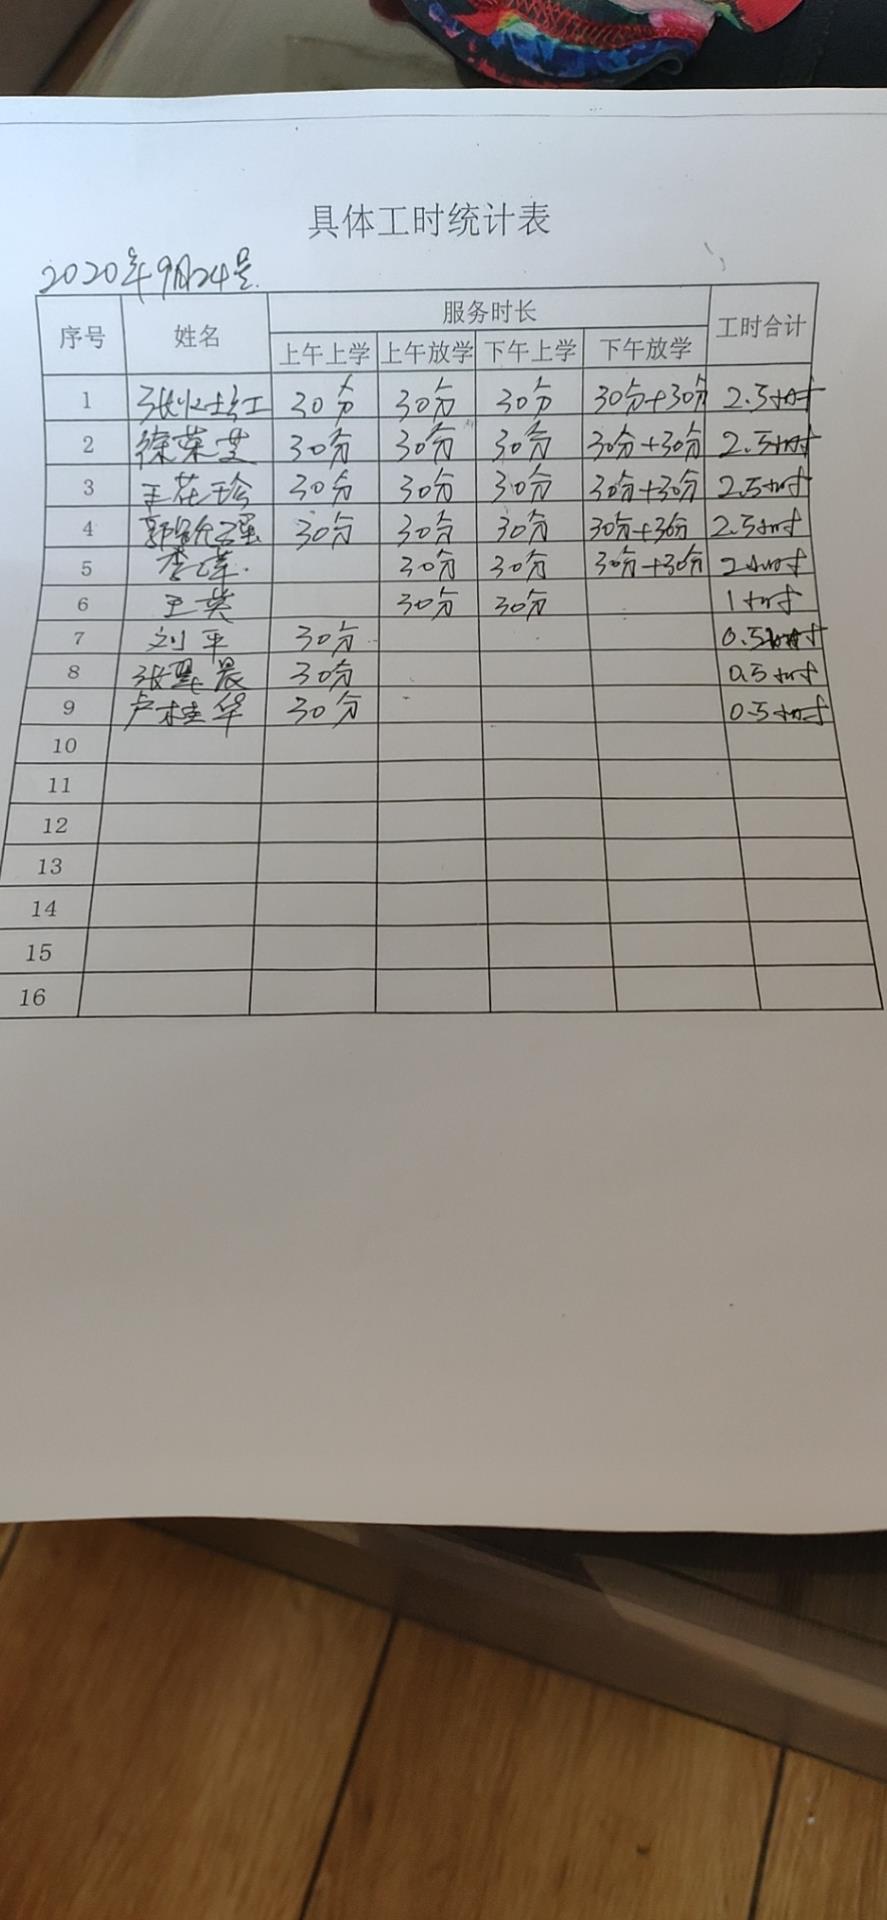 具体工时统计表
2020年9月24号
序号 姓名 服务时长 工时合计
上午上学 上午放学 下午上学 下午放学
1 30分 30分 30分 30分+30分 2.5小时
2 徐荣芝 30分 30分 30分 30分+30分 2.5小时
3 王花珍 30分 30分 30分 30分+30分 2.5小时
4 30分 30分 30分 30分+30分 2.5小时
5 30分 30分 30分+30分 2小时
6 王英 30分 30分 1小时
7 刘平 30分 0.5小时
8 30分 0.5小时
9 卢桂华 30分 0.5小时
10
11
12
13
14
15
16